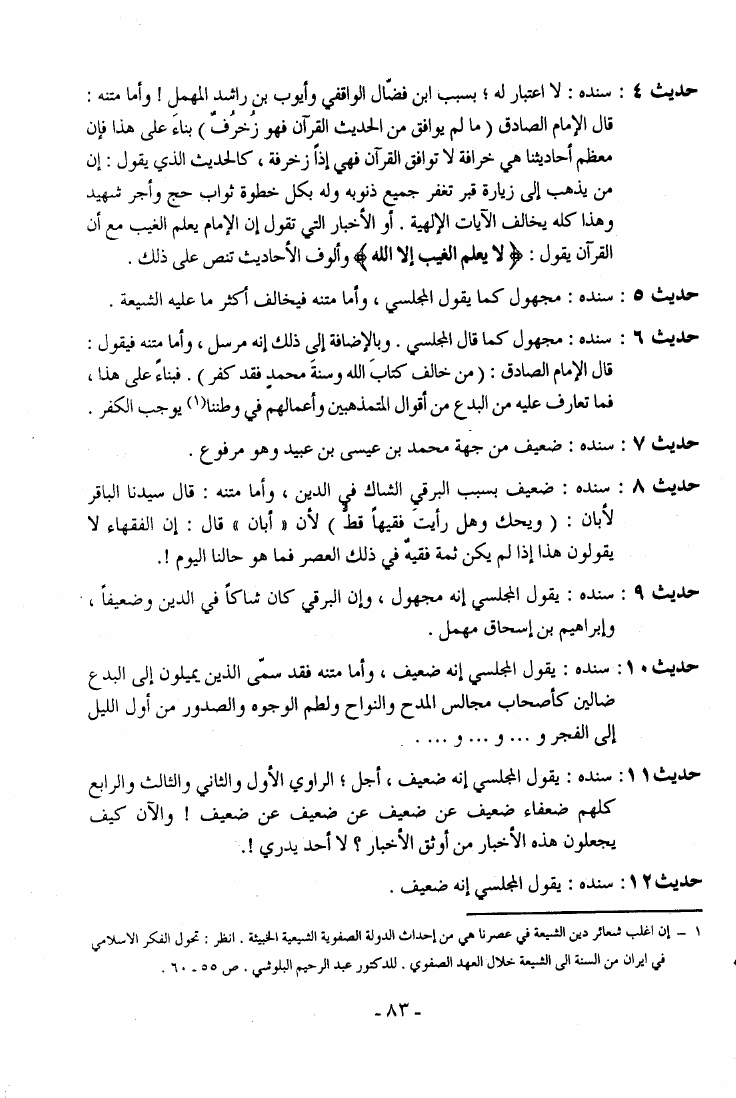 حديث ٤ : سنده : لا اعتبار له ؛ بسبب ابن فضّال الواقفي وأيوب بن راشد المهمل ! وأما متنه :
قال الإمام الصادق ( ما لم يوافق من الحديث القرآن فهو زُخرُفٌ ) بناءَ على هذا فإن
معظم أحاديثنا هي خرافة لا توافق القرآن فهي إذاً زخرفة ، كالحديث الذي يقول : إن
من يذهب إلى زيارة قبر تغفر جميع ذنوبه وله بكل خطوة ثواب حج وأجر شهيد
وهذا كله يخالف الآيات الإلهية . أو الأخبار التي تقول إن الإمام يعلم الغيب مع أن
القرآن يقول : ﴿ لا يعلم الغيب إلا الله ﴾ وألوف الأحاديث تنص على ذلك .
حديث ٥ : سنده : مجهول كما يقول المجلسي ، وأما متنه فيخالف أكثر ما عليه الشيعة .
حديث ٦ : سنده : مجهول كما قال المجلسي . وبالإضافة إلى ذلك إنه مرسل ، وأما متنه فيقول :
قال الإمام الصادق : ( من خالف كتابَ الله وسنةَ محمدٍ فقد كفر ) . فبناءً على هذا ،
فما تعارف عليه من البدع من أقوال المتمذهبين وأعمالهم في وطننا(١) يوجب الكفر .
حديث ٧ : سنده : ضعيف من جهة محمد بن عيسى بن عبيد وهو مرفوع .
حديث ٨ : سنده : ضعيف بسبب البرقي الشاك في الدين ، وأما متنه : قال سيدنا الباقر
لأبان : ( ويحك وهل رأيتَ فقيهاً قطُّ ) لأن « أبان » قال : إن الفقهاء لا
يقولون هذا إذا لم يكن ثمة فقيهٌ في ذلك العصر فما هو حالنا اليوم !.
حديث ٩ : سنده : يقول المجلسي إنه مجهول ، وإن البرقي كان شاكاً في الدين وضعيفاً ،
وإبراهيم بن إسحاق مهمل .
حديث ١٠: سنده : يقول المجلسي إنه ضعيف ، وأما متنه فقد سمّى الذين يميلون إلى البدع
ضالين كأصحاب مجالس المدح والنواح ولطم الوجوه والصدور من أول الليل
إلى الفجر و ... و ... و ... .
حديث ١١: سنده : يقول المجلسي إنه ضعيف ، أجل ؛ الراوي الأول والثاني والثالث والرابع
كلهم ضعفاء ضعيف عن ضعيف عن ضعيف عن ضعيف ! والآن كيف
يجعلون هذه الأخبار من أوثق الأخبار ؟ لا أحد يدري !.
حديث ١٢: سنده : يقول المجلسي إنه ضعيف .
١ – إن اغلب شعائر دين الشيعة في عصرنا هي من إحداث الدولة الصفوية الشيعية الخبيثة . انظر : تحول الفكر الاسلامي
في ايران من السنة الى الشيعة خلال العهد الصفوي . للدكتور عبد الرحيم البلوشي . ص ٥٥ - ٦٠ .
- ٨٣ -